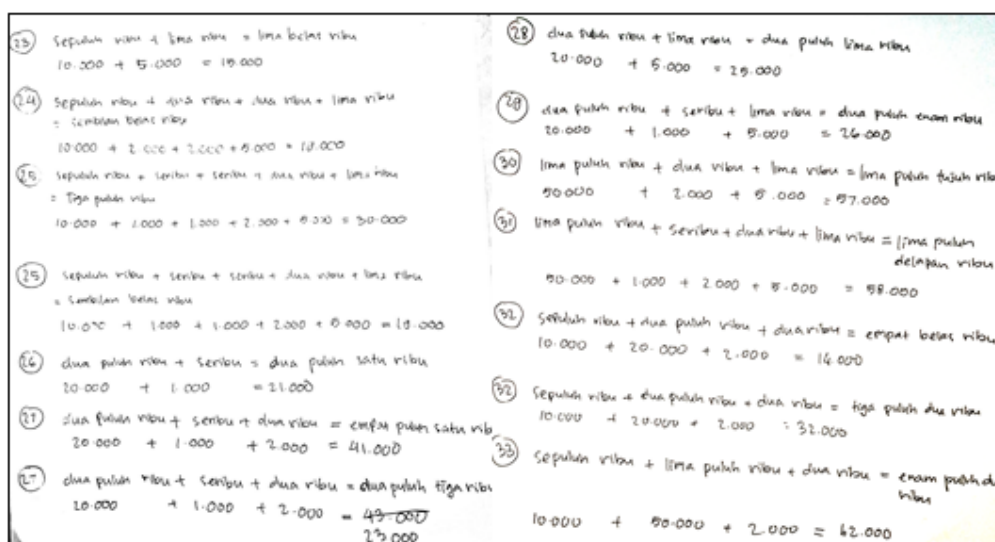 23 sepuluh ribu + lima ribu = lima belas ribu
10.000 + 5.000 = 15.000
24 sepuluh ribu + dua ribu + dua ribu + lima ribu
= sembilan belas ribu
10.000 + 2.000 + 2.000 + 5.000 = 19.000
25 sepuluh ribu + seribu + seribu + dua ribu + lima ribu
= Tiga puluh ribu
10.000 + 1.000 + 1.000 + 2.000 + 5.000 = 30.000
25 sepuluh ribu + seribu + seribu + dua ribu + lima ribu
= sembilan belas ribu
10.000 + 1.000 + 1.000 + 2.000 + 5.000 = 19.000
26 dua puluh ribu + seribu = dua puluh satu ribu
20.000 + 1.000 = 21.000
27 dua puluh ribu + seribu + dua ribu = empat puluh satu rib
20.000 + 1.000 + 2.000 = 41.000
27 dua puluh ribu + seribu + dua ribu = dua puluh tiga ribu
20.000 + 1.000 + 2.000 = 43.000
23.000
28 dua puluh ribu + lima ribu = dua puluh lima ribu
20.000 + 5.000 = 25.000
29 dua puluh ribu + seribu + lima ribu = dua puluh enam ribu
20.000 + 1.000 + 5.000 = 26.000
30 lima puluh ribu + dua ribu + lima ribu = lima puluh tujuh rib
50.000 + 2.000 + 5.000 = 57.000
31 lima puluh ribu + seribu + dua ribu + lima ribu = lima puluh
delapan ribu
50.000 + 1.000 + 2.000 + 5.000 = 58.000
32 sepuluh ribu + dua puluh ribu + dua ribu = empat belas ribu
10.000 + 20.000 + 2.000 = 14.000
32 sepuluh ribu + dua puluh ribu + dua ribu = tiga puluh dua ribu
10.000 + 20.000 + 2.000 = 32.000
33 sepuluh ribu + lima puluh ribu + dua ribu = enam puluh d
ribu
10.000 + 50.000 + 2.000 = 62.000